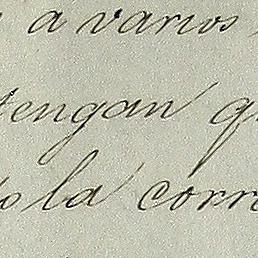 a varios
tengan q
la corr